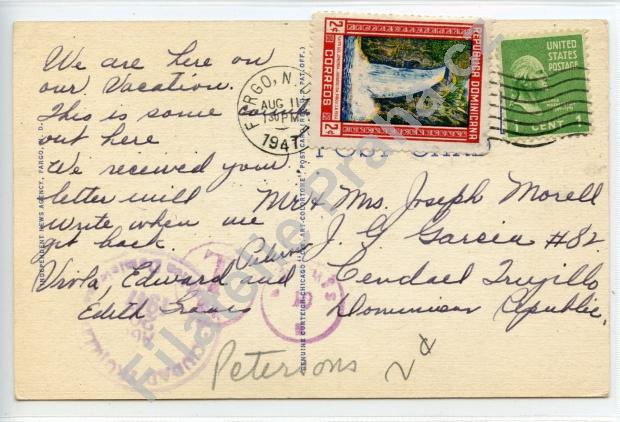 We are here on
our Vacation.
This is some
out here
We received your
letter will
Write when we
get back.
Viola, Edward and
Edith
Mr & Mrs. Joseph Morell
J. G Garcia #82
Ciudad Trujillo
Dominican Republic,
Petersons
2¢
FARGO, N.
AUG 11
30 PM
1941
2¢
REPUBLICA DOMINICANA
CORREOS
2¢
UNITED
STATES
POSTAGE
1 CENT 1
POST CARD
INDEPENDENT NEWS AGENCY, FARGO, N. D.
GENUINE CURTEICH-CHICAGO "C.T. ART-COLORTONE" POST CARD (REG. U.S. PAT. OFF.)
CIUDAD TRUJILLO
Filatelie Praha.cz